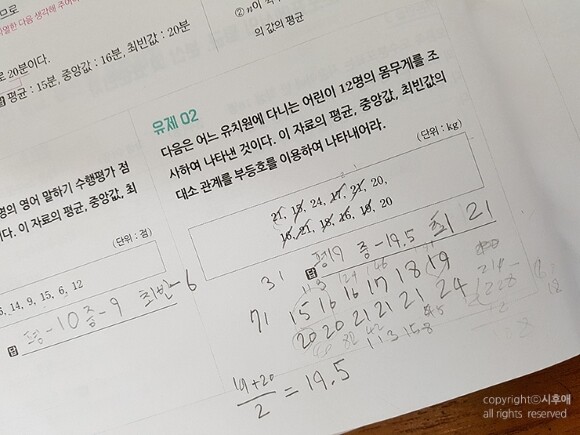 열한 다음 생각해 주어
② n이
의 값의 평균
로 20분이다.
답 평균 : 15분, 중앙값 : 16분, 최빈값 : 20분
유제 02
다음은 어느 유치원에 다니는 어린이 12명의 몸무게를 조
사하여 나타낸 것이다. 이 자료의 평균, 중앙값, 최빈값의
대소 관계를 부등호를 이용하여 나타내어라.
(단위 : kg)
21, 15, 24, 17, 21, 20,
16, 21, 18, 16, 19, 20
답 평 19 중 - 19.5 최 21
31
71 15 16 16 17 18 19
20 20 21 21 21 24
19+20
2 = 19.5
명의 영어 말하기 수행평가 점
이다. 이 자료의 평균, 중앙값, 최
(단위 : 점)
5, 14, 9, 15, 6, 12
답 평 - 10 중 - 9 최빈 - 6
copyrightⓒ시후애
all rights reserved